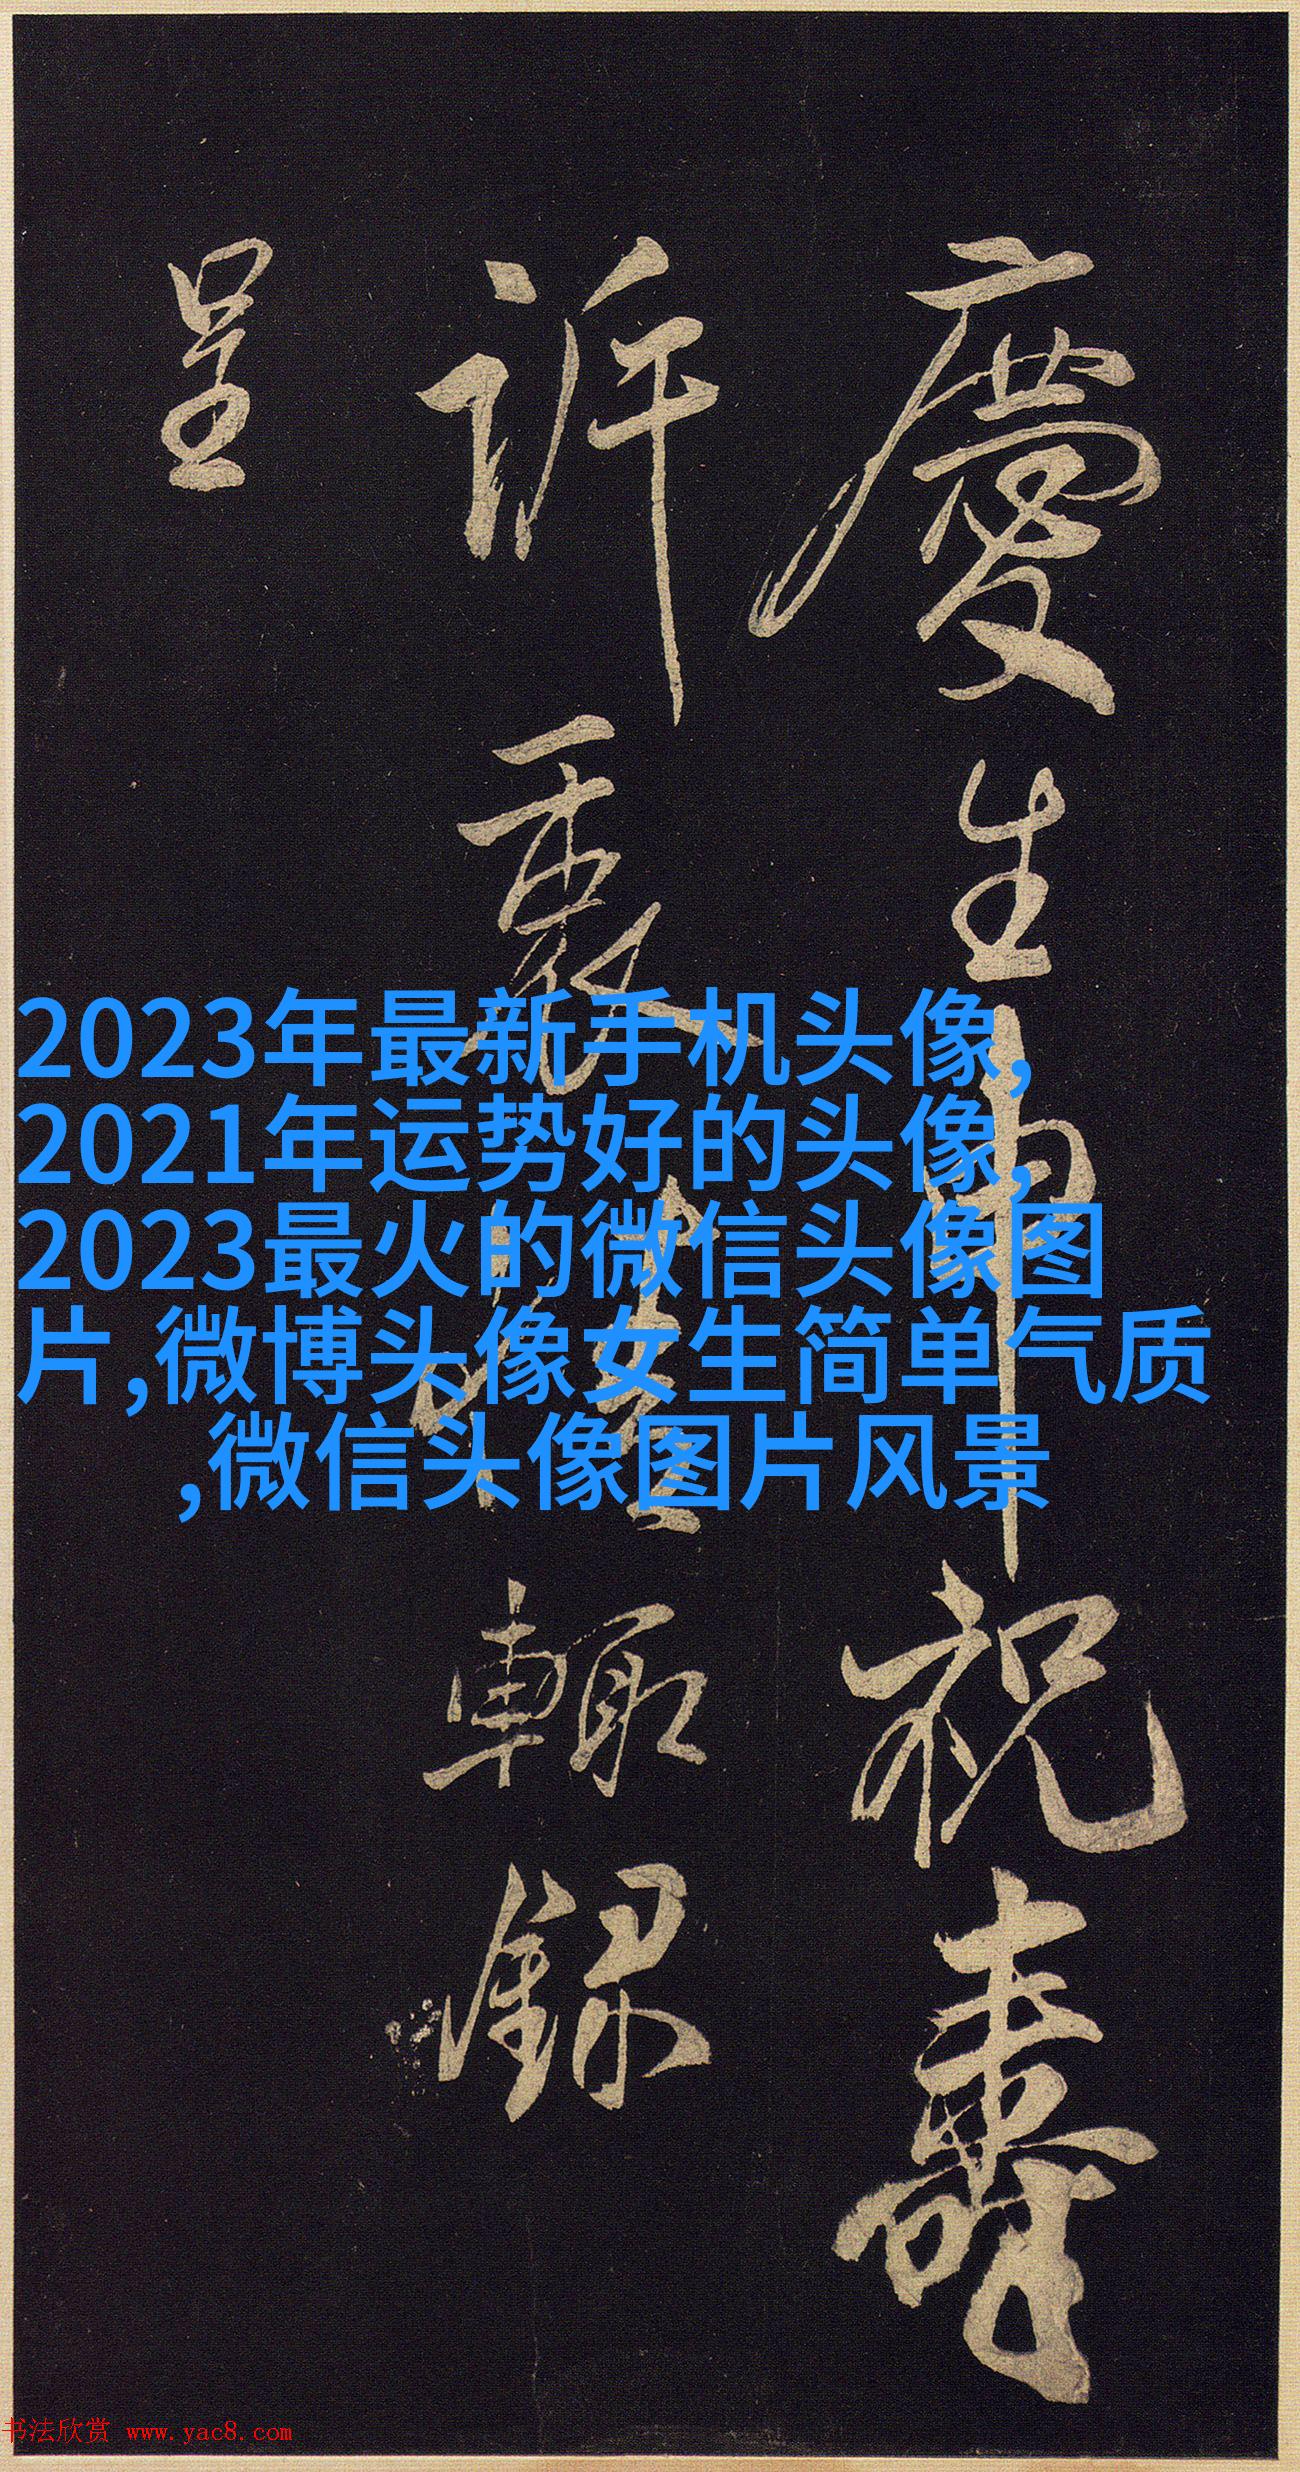 慶生申祝壽
訴衷情輒録
呈
2023年最新手机头像,
2021年运势好的头像,
2023最火的微信头像图
片,微博头像女生简单气质
,微信头像图片风景
书法欣赏 www.yac8.com